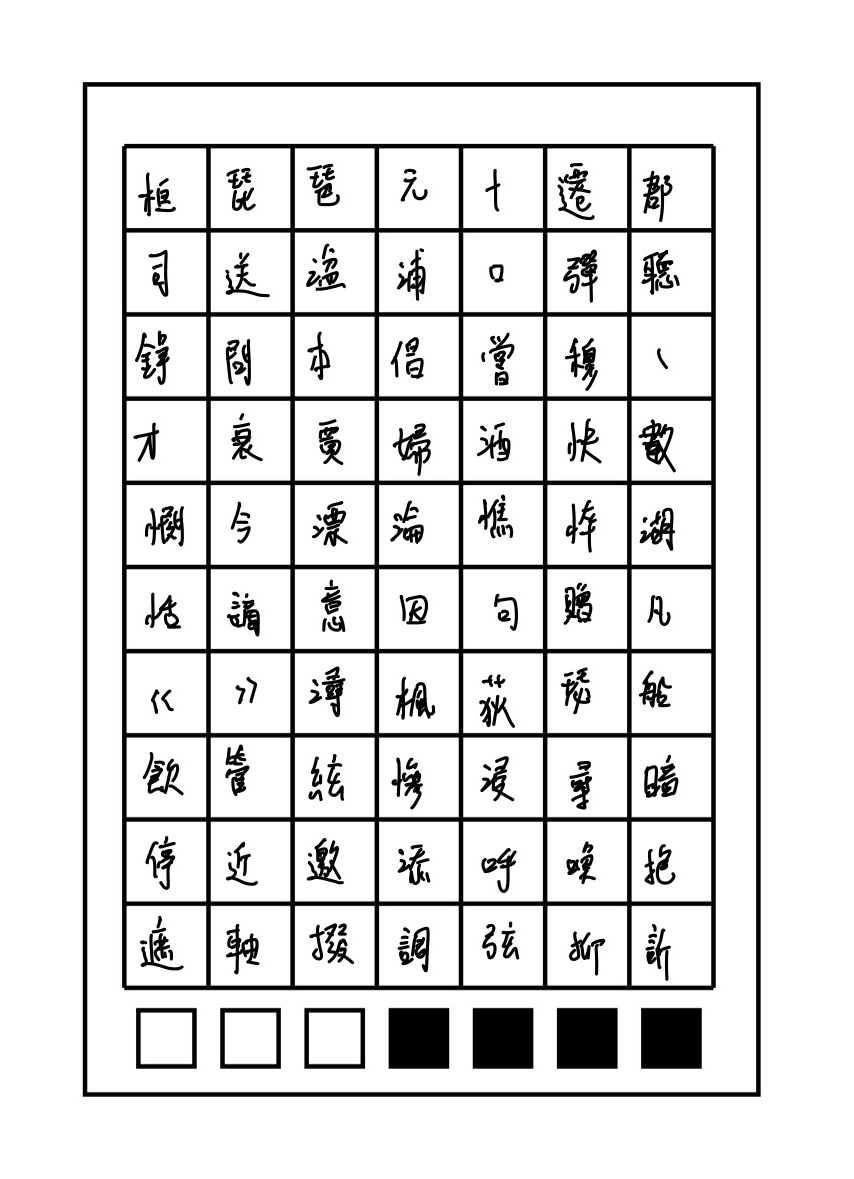 框琵琶元十遷郡
司送湓浦口彈聽
錚問本倡嘗穆、
才衰賈婦酒快數
憫今漂淪憔悴湖
恬謫意因句贈凡
《》潯楓荻瑟船
飲管絃慘浸尋暗
停近邀添呼喚抱
遮軸撥調弦抑訴